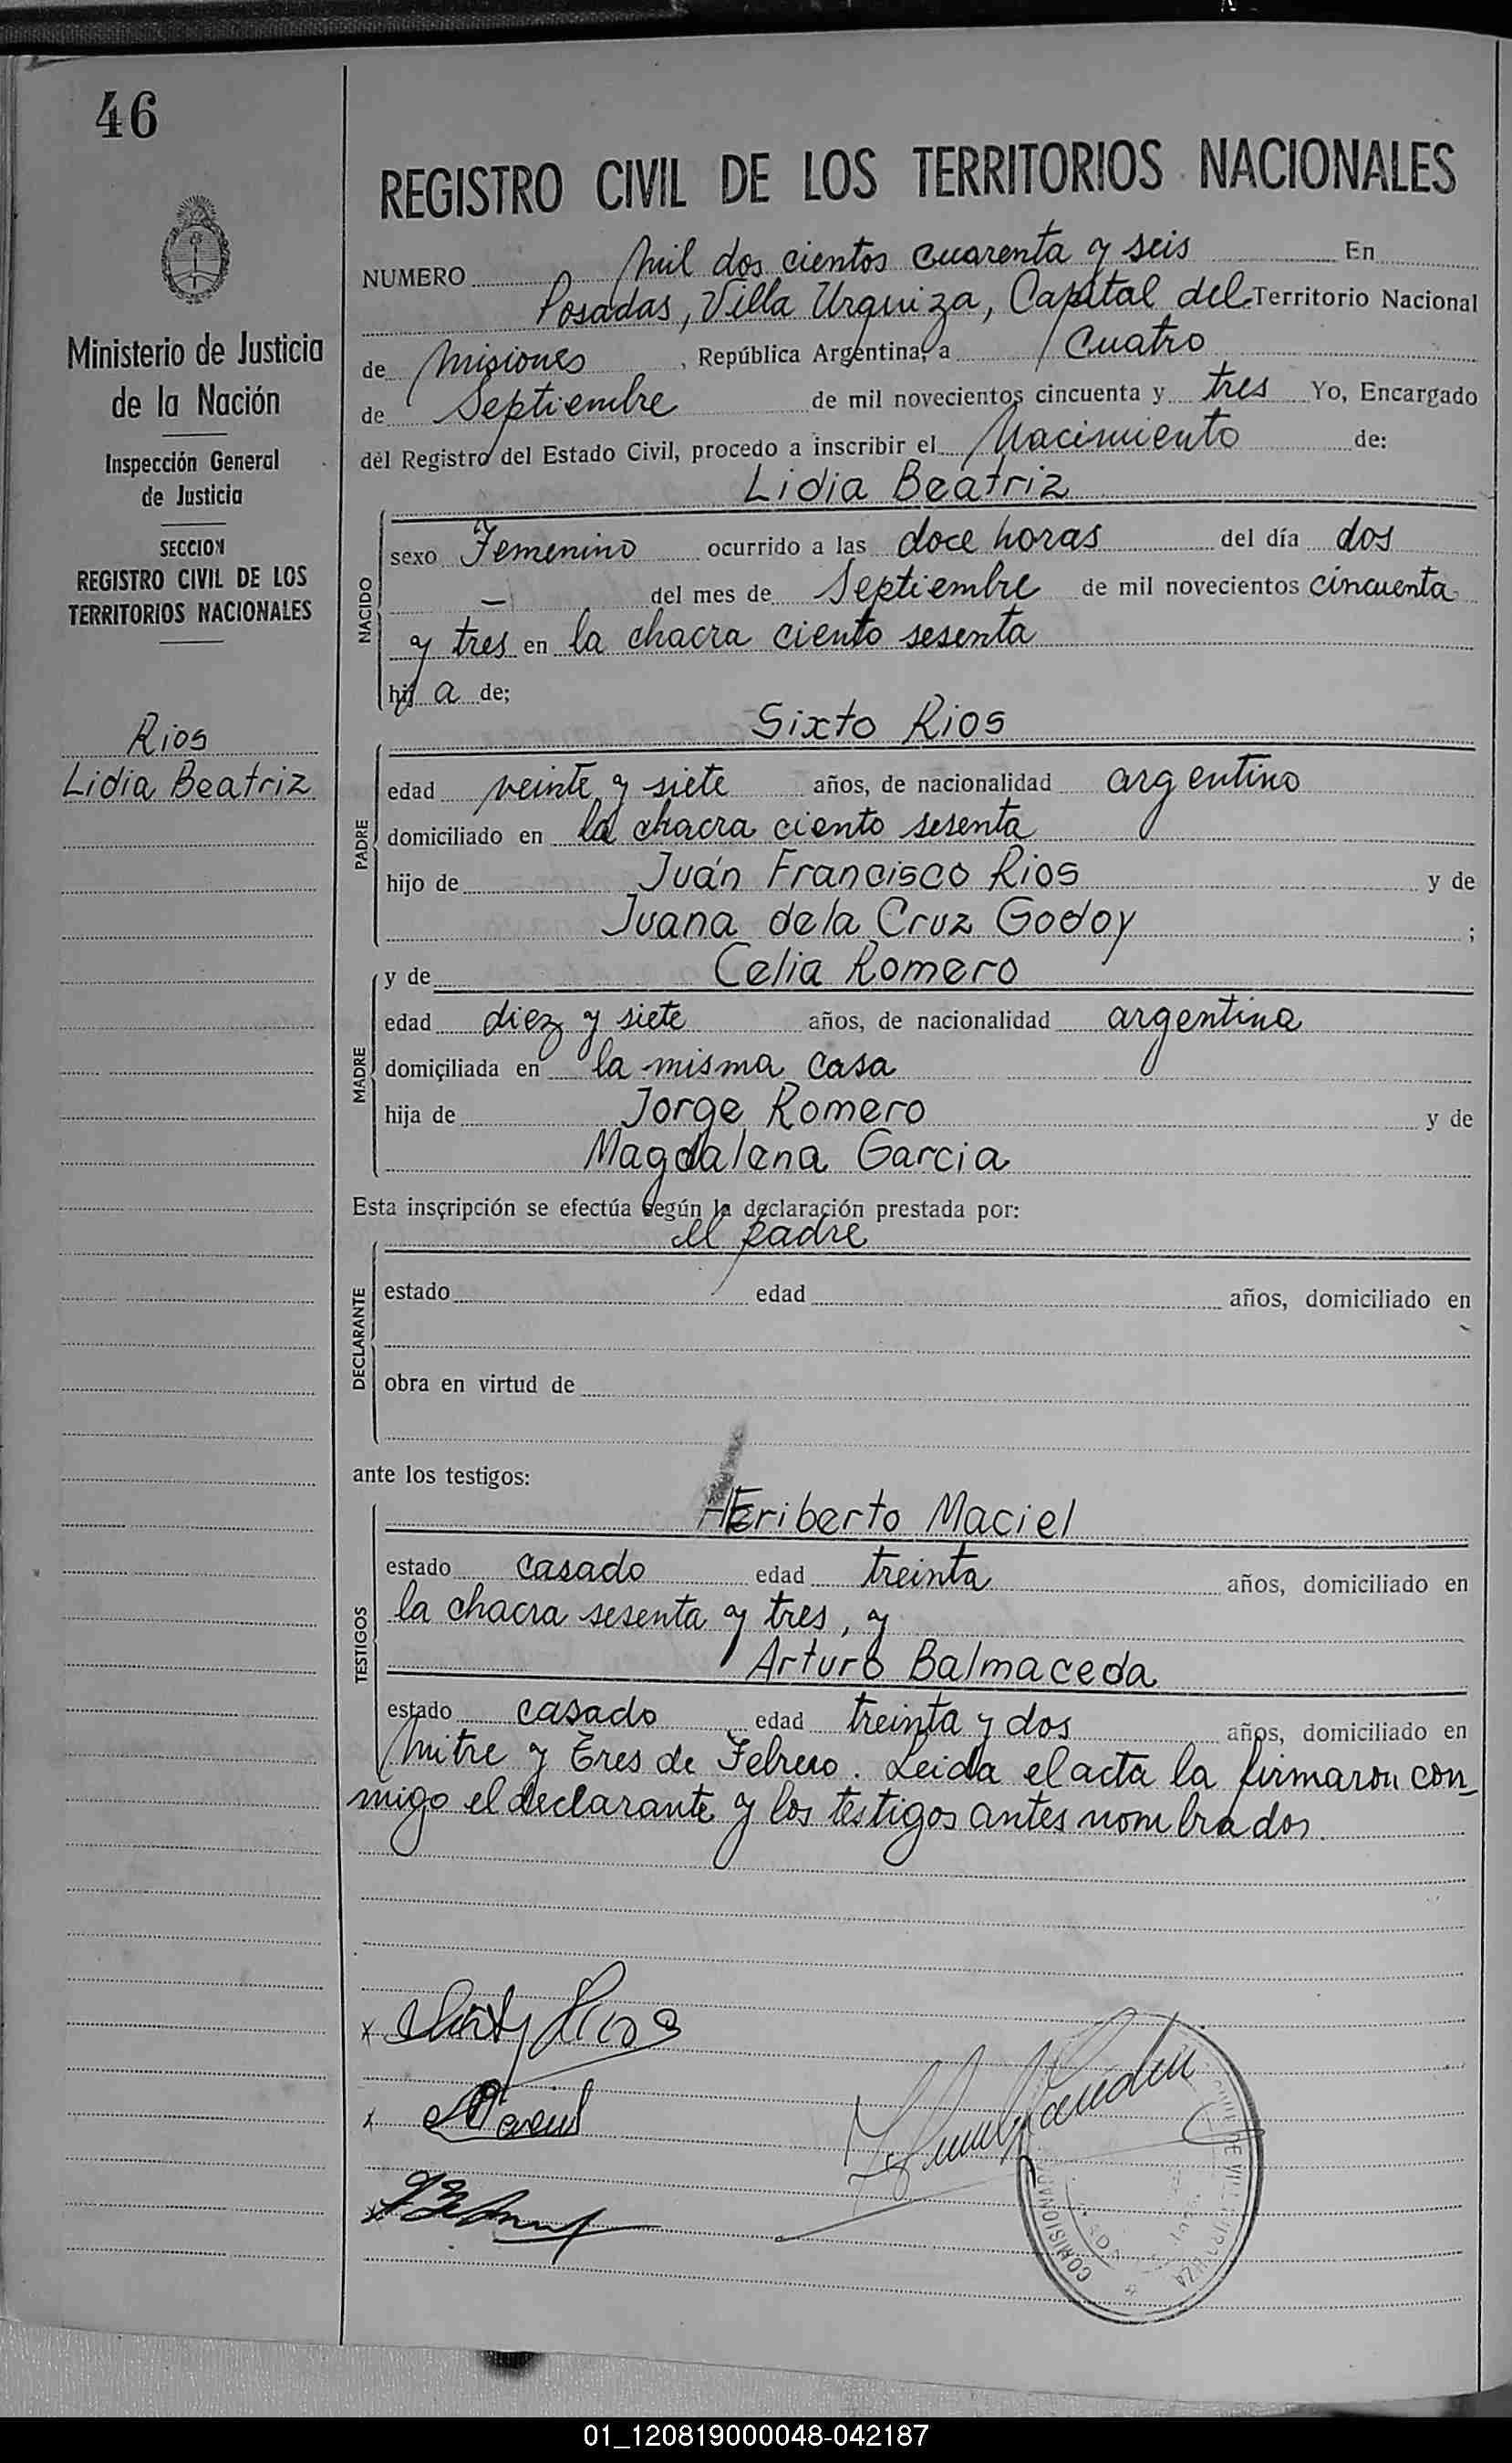 46
REGISTRO CIVIL DE LOS TERRITORIOS NACIONALES
Ministerio de Justicia
de la Nación
Inspección General
de Justicia
SECCION
REGISTRO CIVIL DE LOS
TERRITORIOS NACIONALES
Rios
Lidia Beatriz
NUMERO mil dos cientos cuarenta y seis En
Posadas, Villa Urquiza, Capital del Territorio Nacional
de Misiones, República Argentina, a Cuatro
de Septiembre de mil novecientos cincuenta y tres Yo, Encargado
del Registro del Estado Civil, procedo a inscribir el Nacimiento de:
Lidia Beatriz
NACIDO
sexo Femenino ocurrido a las doce horas del día dos
— del mes de Septiembre de mil novecientos cincuenta
y tres en la chacra ciento sesenta
hij a de;
Sixto Rios
PADRE
edad veinte y siete años, de nacionalidad argentino
domiciliado en la chacra ciento sesenta
hijo de Juán Francisco Rios y de
Juana de la Cruz Godoy ;
y de Celia Romero
MADRE
edad diez y siete años, de nacionalidad argentina
domiciliada en la misma casa
hija de Jorge Romero y de
Magdalena Garcia
Esta inscripción se efectúa según la declaración prestada por:
el padre
DECLARANTE
estado edad años, domiciliado en
obra en virtud de
ante los testigos:
HEriberto Maciel
TESTIGOS
estado casado edad treinta años, domiciliado en
la chacra sesenta y tres, y
Arturo Balmaceda
estado casado edad treinta y dos años, domiciliado en
Mitre y Tres de Febrero. Leida el acta la firmaron con-
migo el declarante y los testigos antes nombrados.
x Sixto Rios
x
x
COMISIONADO
DE VILLA URQUIZA
01_120819000048-042187